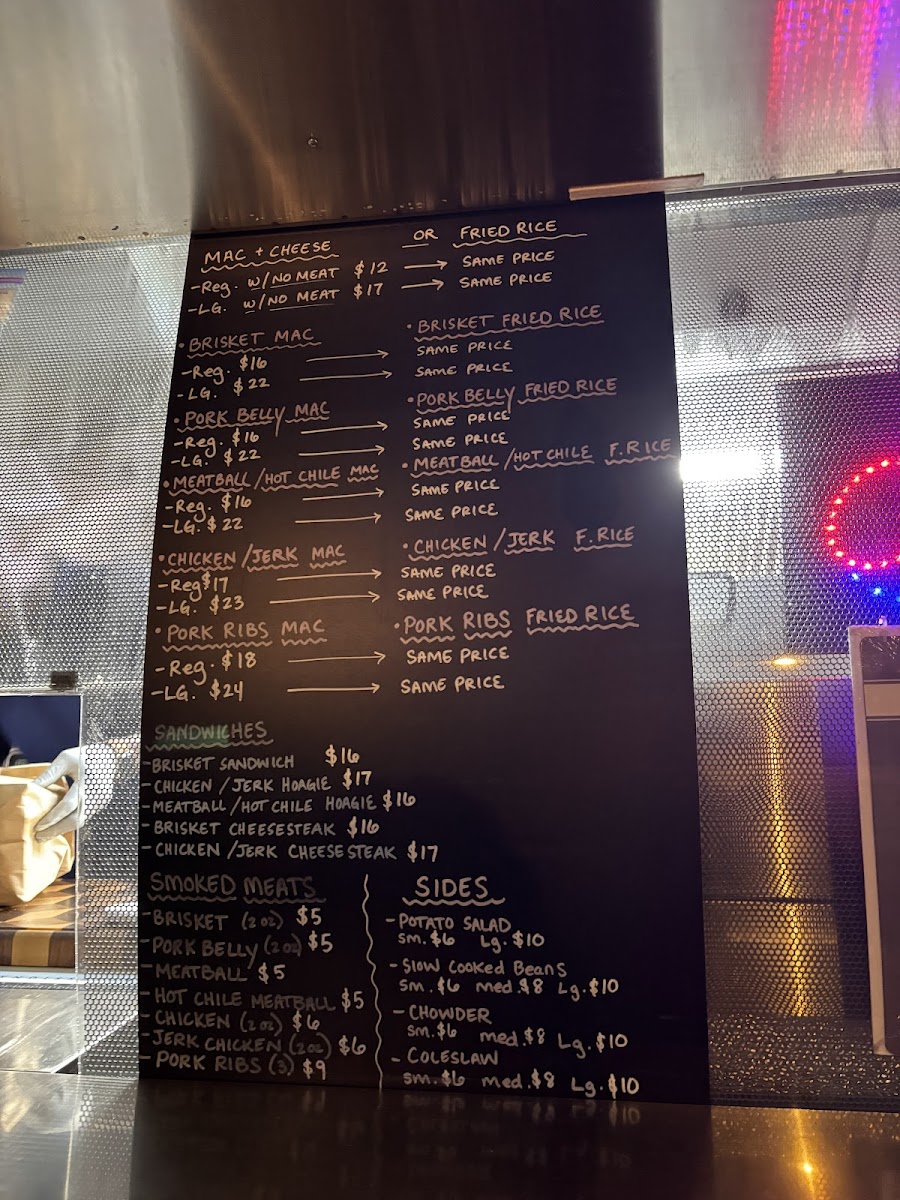 MAC + CHEESE OR FRIED RICE
-Reg. w/NO MEAT $12 → SAME PRICE
-LG. w/NO MEAT $17 → SAME PRICE
• BRISKET MAC • BRISKET FRIED RICE
-Reg. $16 → SAME PRICE
-LG. $22 → SAME PRICE
• PORK BELLY MAC • PORK BELLY FRIED RICE
-Reg. $16 → SAME PRICE
-LG. $22 → SAME PRICE
• MEATBALL/HOT CHILE MAC • MEATBALL/HOT CHILE F.RICE
-Reg. $16 → SAME PRICE
-LG. $22 → SAME PRICE
• CHICKEN/JERK MAC • CHICKEN/JERK F.RICE
-Reg $17 → SAME PRICE
-LG. $23 → SAME PRICE
• PORK RIBS MAC • PORK RIBS FRIED RICE
-Reg. $18 → SAME PRICE
-LG. $24 → SAME PRICE
SANDWICHES
-BRISKET SANDWICH $16
-CHICKEN/JERK HOAGIE $17
-MEATBALL/HOT CHILE HOAGIE $16
-BRISKET CHEESESTEAK $16
-CHICKEN/JERK CHEESESTEAK $17
SMOKED MEATS
-BRISKET (2oz) $5
-PORK BELLY (2oz) $5
-MEATBALL $5
-HOT CHILE MEATBALL $5
-CHICKEN (2oz) $6
JERK CHICKEN (2oz) $6
-PORK RIBS (3) $9
SIDES
-POTATO SALAD
sm. $6 Lg. $10
-Slow Cooked Beans
sm. $6 med. $8 Lg. $10
-CHOWDER
sm. $6 med. $8 Lg. $10
-COLESLAW
sm. $6 med. $8 Lg. $10